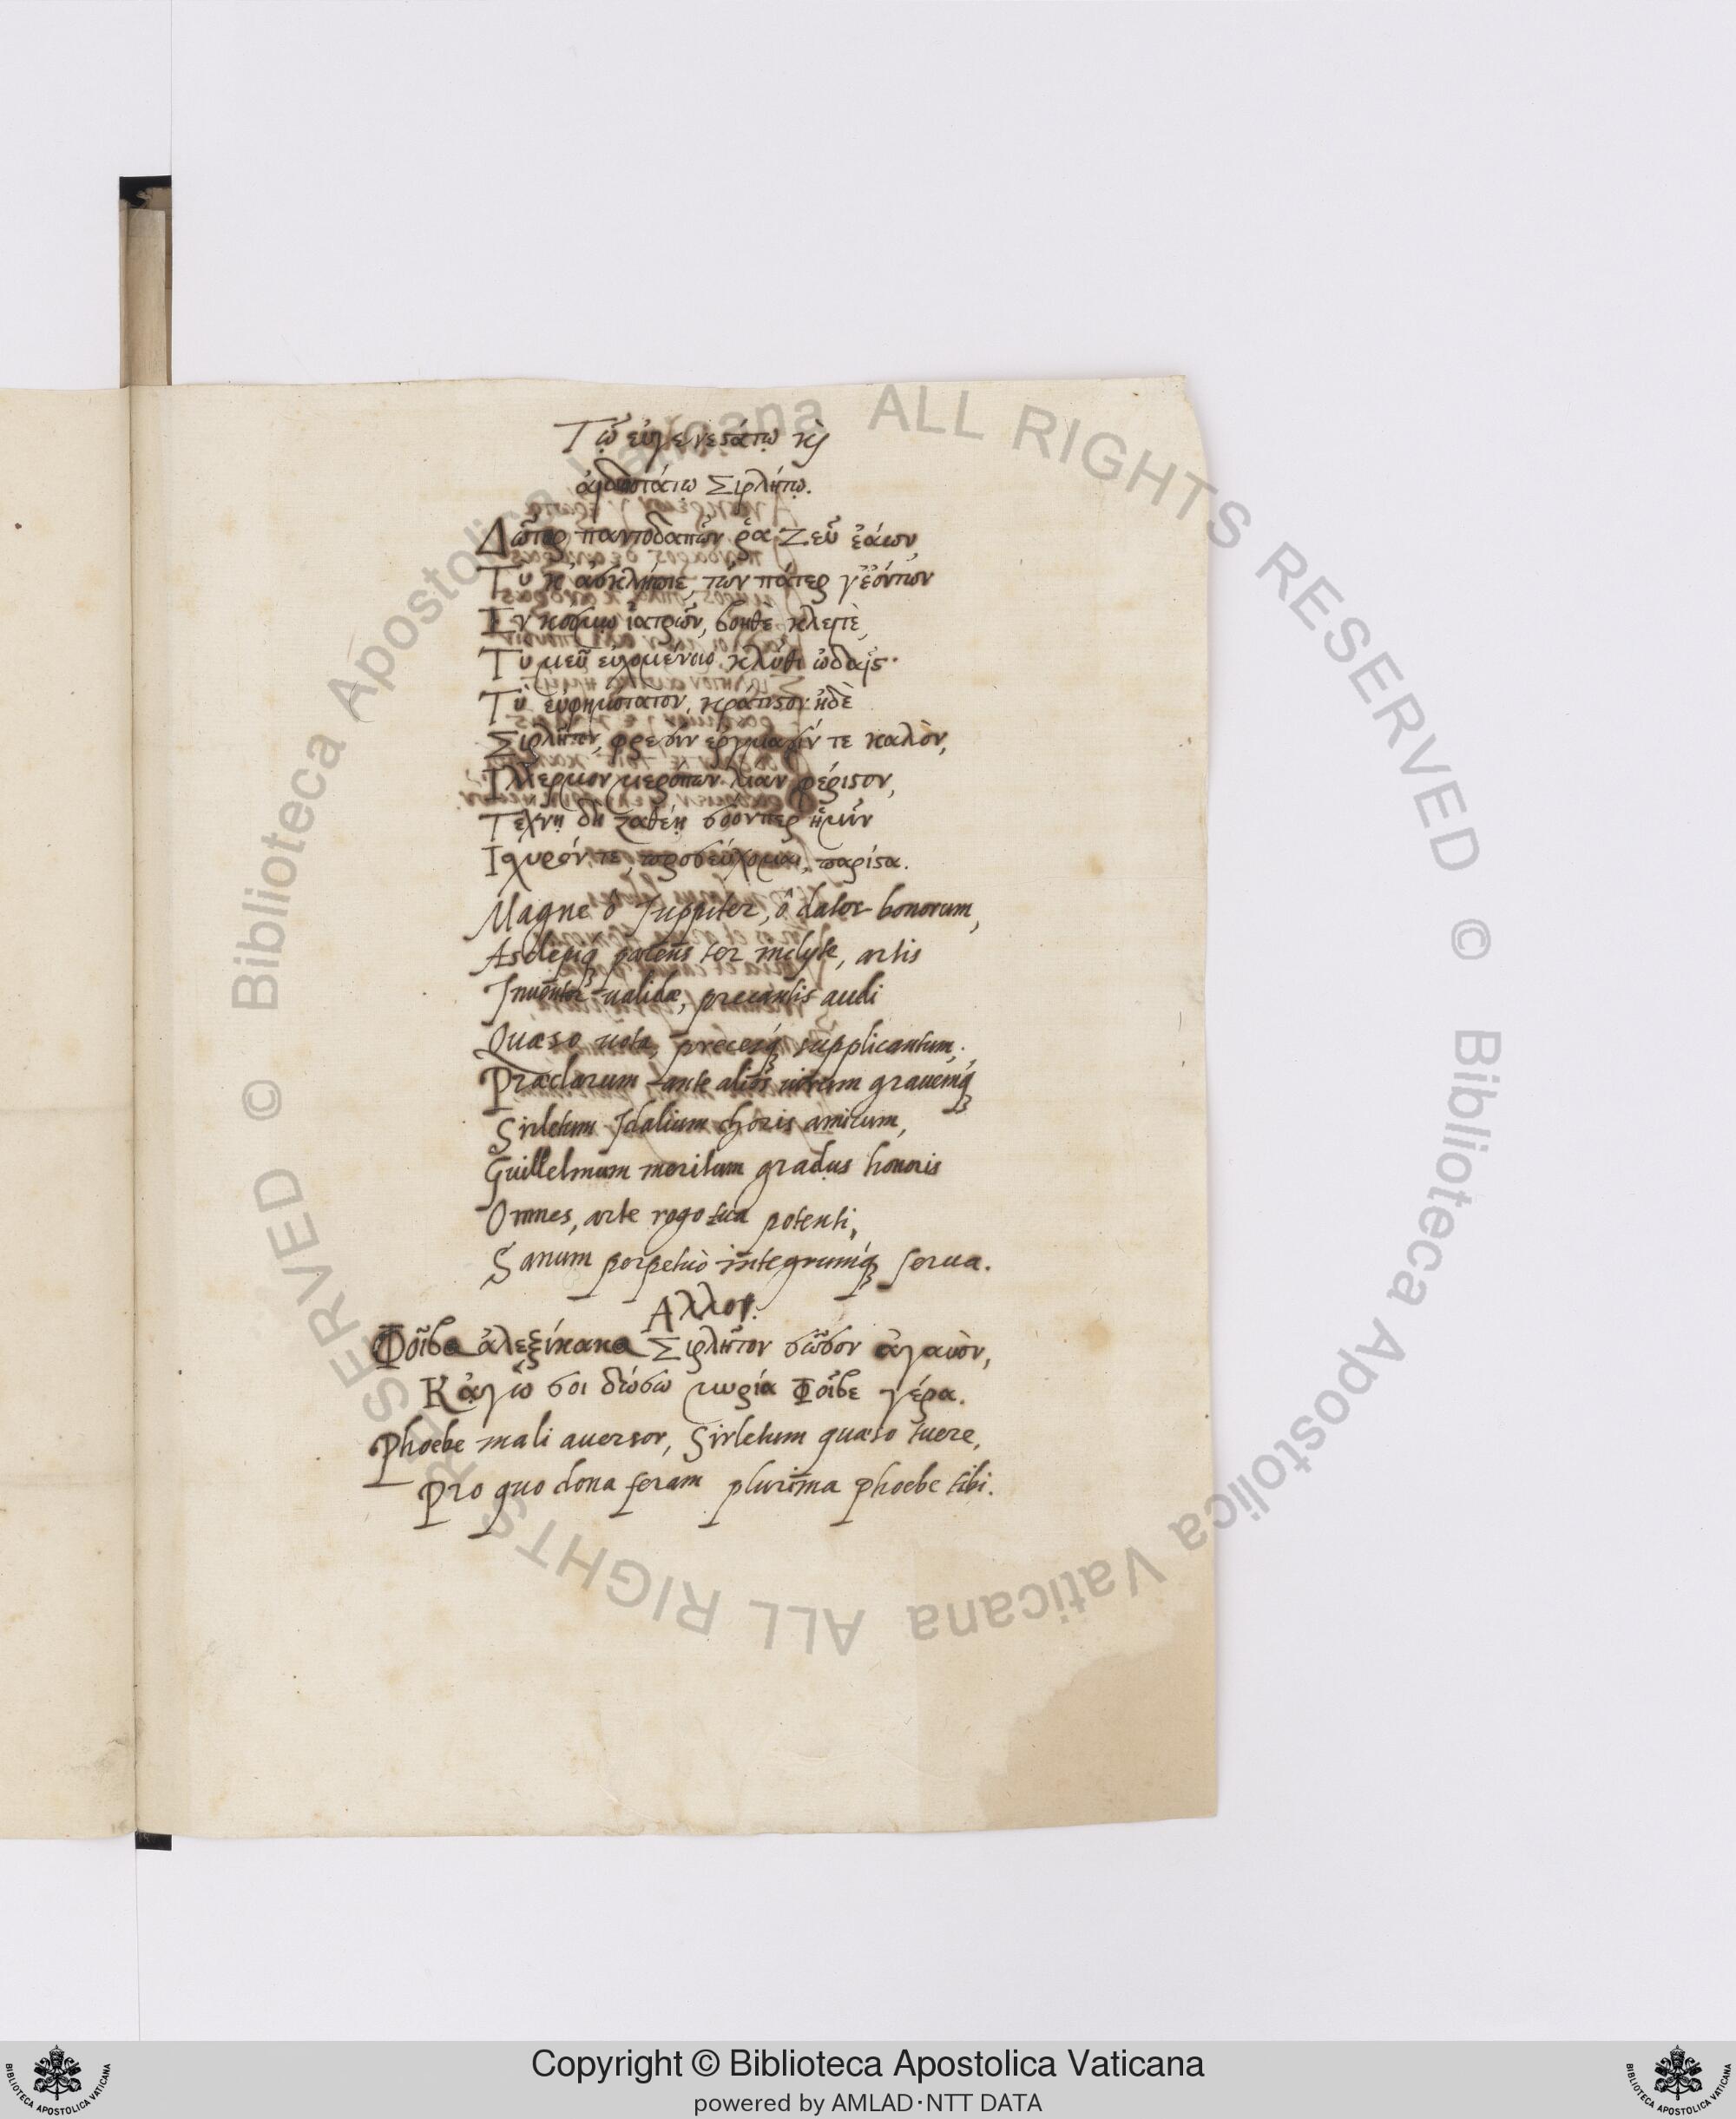 Τῷ εὐγενεστάτῳ καὶ
αἰδεστάτῳ Σιρλήτῳ.
Δῶτορ παντοδαπῶν ῥα Ζεῦ ἐάων,
Τυ κ' ἀσκλήπιε, τῶν πάτερ
Εν κόσμῳ ἰατρῶν, βοηθὲ κλειτὲ,
Τυ μεῦ εὐχομένοιο κλῦθι ὠδαῖς·
Τὺ εὐφημότατον, κράτιστον ἠδὲ
Σιρλῆτον, φρεσὶν ἔργμασίν τε καλὸν,
μερόπων λίαν φέριστον,
Τέχνῃ δὴ ζαθέῃ σόον περ ἡμῖν
Ισχυρόν τε, προσεύχομαι, παρίστα.
Magne ô Juppiter, ô dator bonorum,
Asclepiq́ parens ter inclyte, artis
Inuentor ualidæ, precantis audi
Quæso uota, precesq́ supplicantum;
Præclarum ante alios uirum grauemq́
Sirletum Idalium choris amicum,
Guillelmum meritum gradus honoris
Omnes, arte rogo tua potenti,
Sanum perpetuò integrumq́ serua.
Αλλος.
Φοῖβε ἀλεξίκακε Σιρλῆτον σῶσον ἀγαυὸν,
Κᾀγὼ σοι δώσω μυρία Φοῖβε γέρα.
Phoebe mali auersor, Sirletum quæso tuere,
Pro quo dona feram plurima phoebe tibi.
ALL RIGHTS RESERVED © Biblioteca Apostolica Vaticana
ALL RIGHTS RESERVED © Biblioteca Apostolica Vaticana
Copyright © Biblioteca Apostolica Vaticana
powered by AMLAD·NTT DATA
BIBLIOTECA APOSTOLICA VATICANA
BIBLIOTECA APOSTOLICA VATICANA